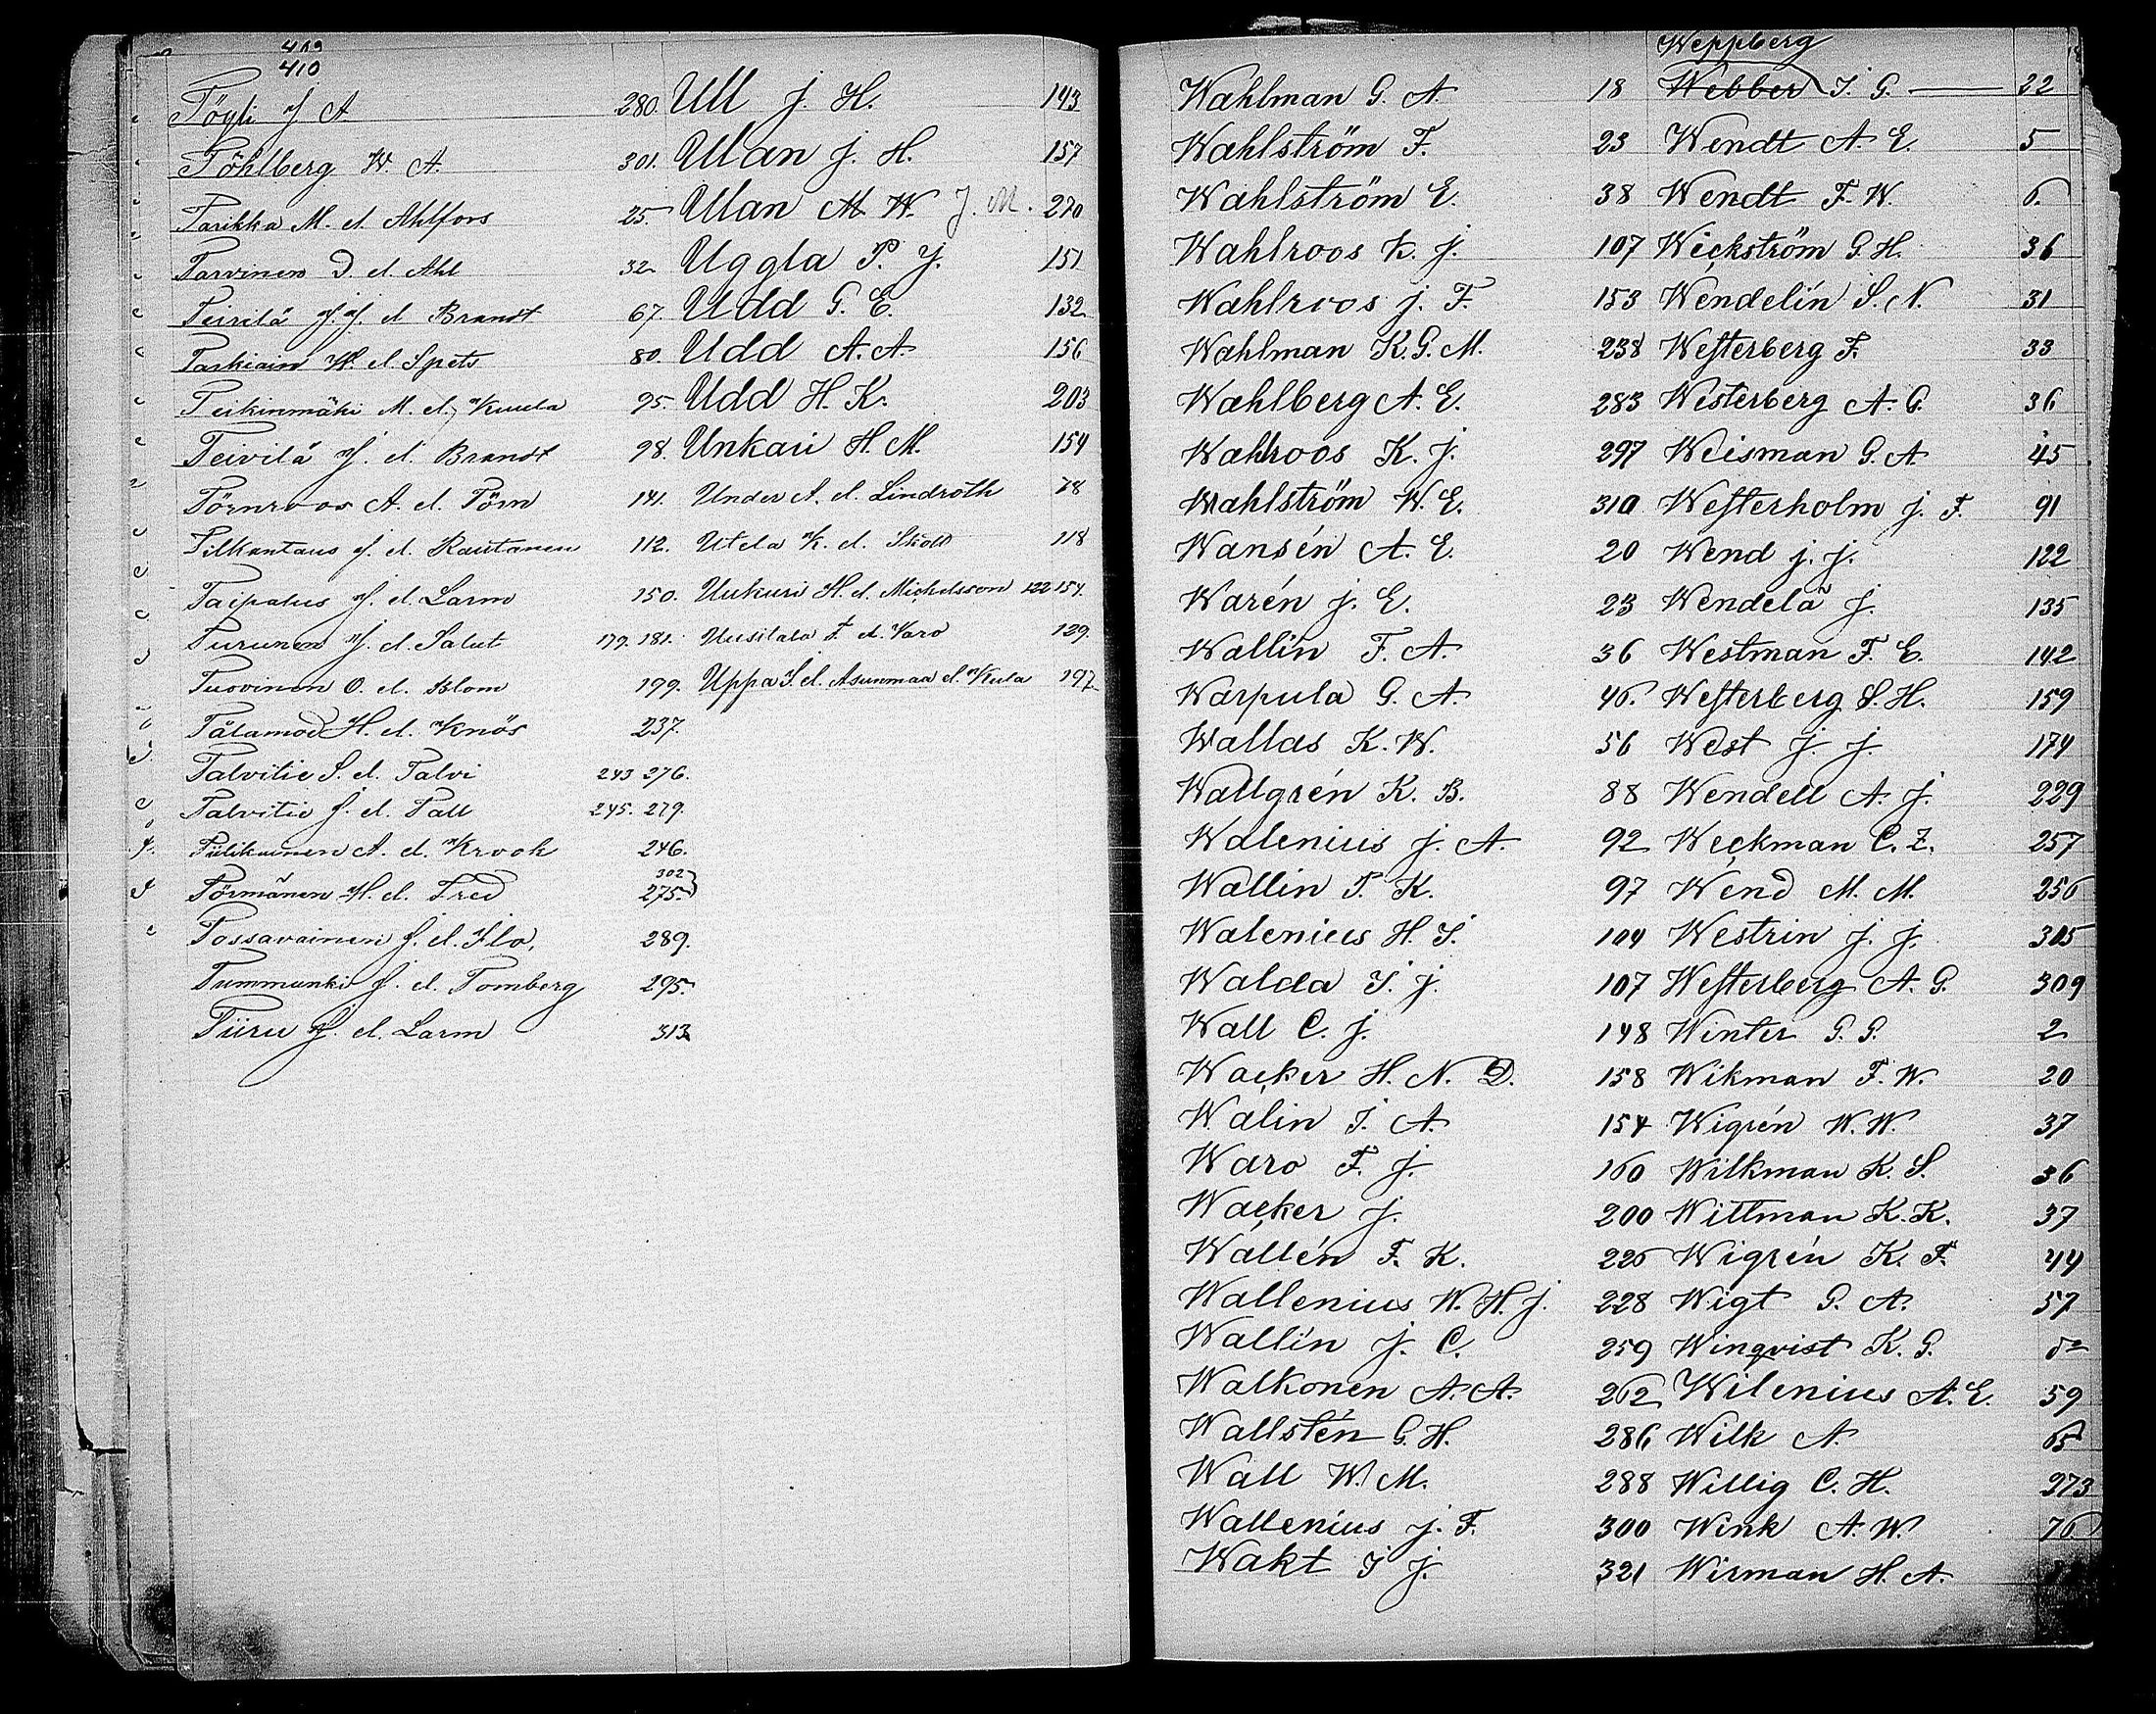 409
410
Töyli J A 280.
Töhlberg W. A. 301.
Tarikka M. el. Ahlfors 25
Tarvinen D. el. Ahl 32
Teirilä J. J. el Brandt 67.
Taskiain W. el. Spets 80.
Teikinmäki M. el. Kuula 95.
Teivilä J. el. Brandt 98.
Törnroos A. el. Törn 141.
Pilkantaus J. el. Rautanen 112.
Taipalus J. el. Larm 150.
Turunen J. el. Salut 179. 181.
Tuovinen O. el. Blom 199.
Tålamod H. el. Knös 237.
Talvitie S. el. Talvi 243 276.
Talvitie J. el. Tall 245. 279.
Tiilikainen A. el. Krook 246.
Törmänen H. el. Fred 302 275.
Tossavainen J. el. Ilo, 289.
Tummunki J. el. Tomberg 295.
Tiiru J. el. Larm 313
Ull J. H. 143
Ulan J. H. 157
Ulan M W. J. M. 270
Uggla P. J. 151
Udd G. E. 132
Udd A. A. 156
Udd H. K. 203
Unkari H. M. 154
Under A. el. Lindroth 78
Utela K. el. Sköld 118
Uukuri H. el. Michelsson 122 154.
Uusitalo F. el. Varo 129.
Uppa S. el. Asunmaa el. Kula 197
Wahlman G. A. 18
Wahlström F. 23
Wahlström E. 38
Wahlroos K. J. 107
Wahlroos J. F. 153
Wahlman K. G. M. 238
Wahlberg A. E. 283
Wahlroos K. J. 297
Wahlström W. E. 310
Wansén A. E. 20
Warén J. E. 23
Wallin F. A. 36
Warpula G. A. 46.
Wallas K. W. 56
Wallgrén K. B. 88
Walenius J. A. 92
Wallin T. K. 97
Walenius H. S. 104
Walda I. J. 107
Wall C. J. 148
Wacker H. N. D. 158
Wálin I. A. 154
Waro F. J. 160
Wacker J. 200
Wallén F. K. 226
Wallenius W. H. J. 228
Wallin J. C. 259
Walkonen A. A. 262
Wallstén G. H. 286
Wall W. M. 288
Wallenius J. F. 300
Wakt I J. 321
Weppberg
Webber I. G. 22
Wendt A. E. 5
Wendt F. W. 6.
Weckström G. H. 36
Wendelin S. N. 31
Westerberg F. 33
Westerberg A. G. 36
Weisman G. A. 45
Westerholm J. F. 91
Wend J. J. 122
Wendelä J. 135
Westman F. E. 142
Westerberg S. H. 159
West J. J. 174
Wendell A. J. 229
Weckman C. Z. 257
Wend M. M. 256
Westrin J. J. 305
Westerberg A. G. 309
Winter G. G. 2
Wikman F. W. 20
Wigrén W. W. 37
Wilkman K. S. 36
Wittman K. K. 37
Wigrén K. F. 44
Wigt G. A. 57
Winqvist K. G.
Wilenius A. E. 59
Wilk A. 65
Willig C. H. 273
Wink A. W. 76
Wirman H. A.